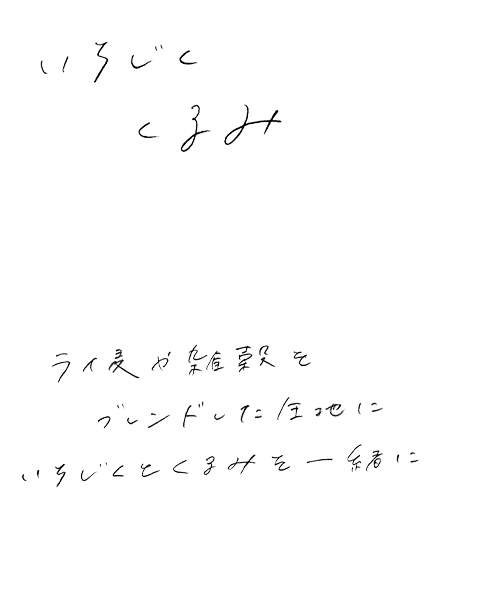 いちじく
くるみ
ライ麦や雑穀を
ブレンドした生地に
いちじくとくるみを一緒に